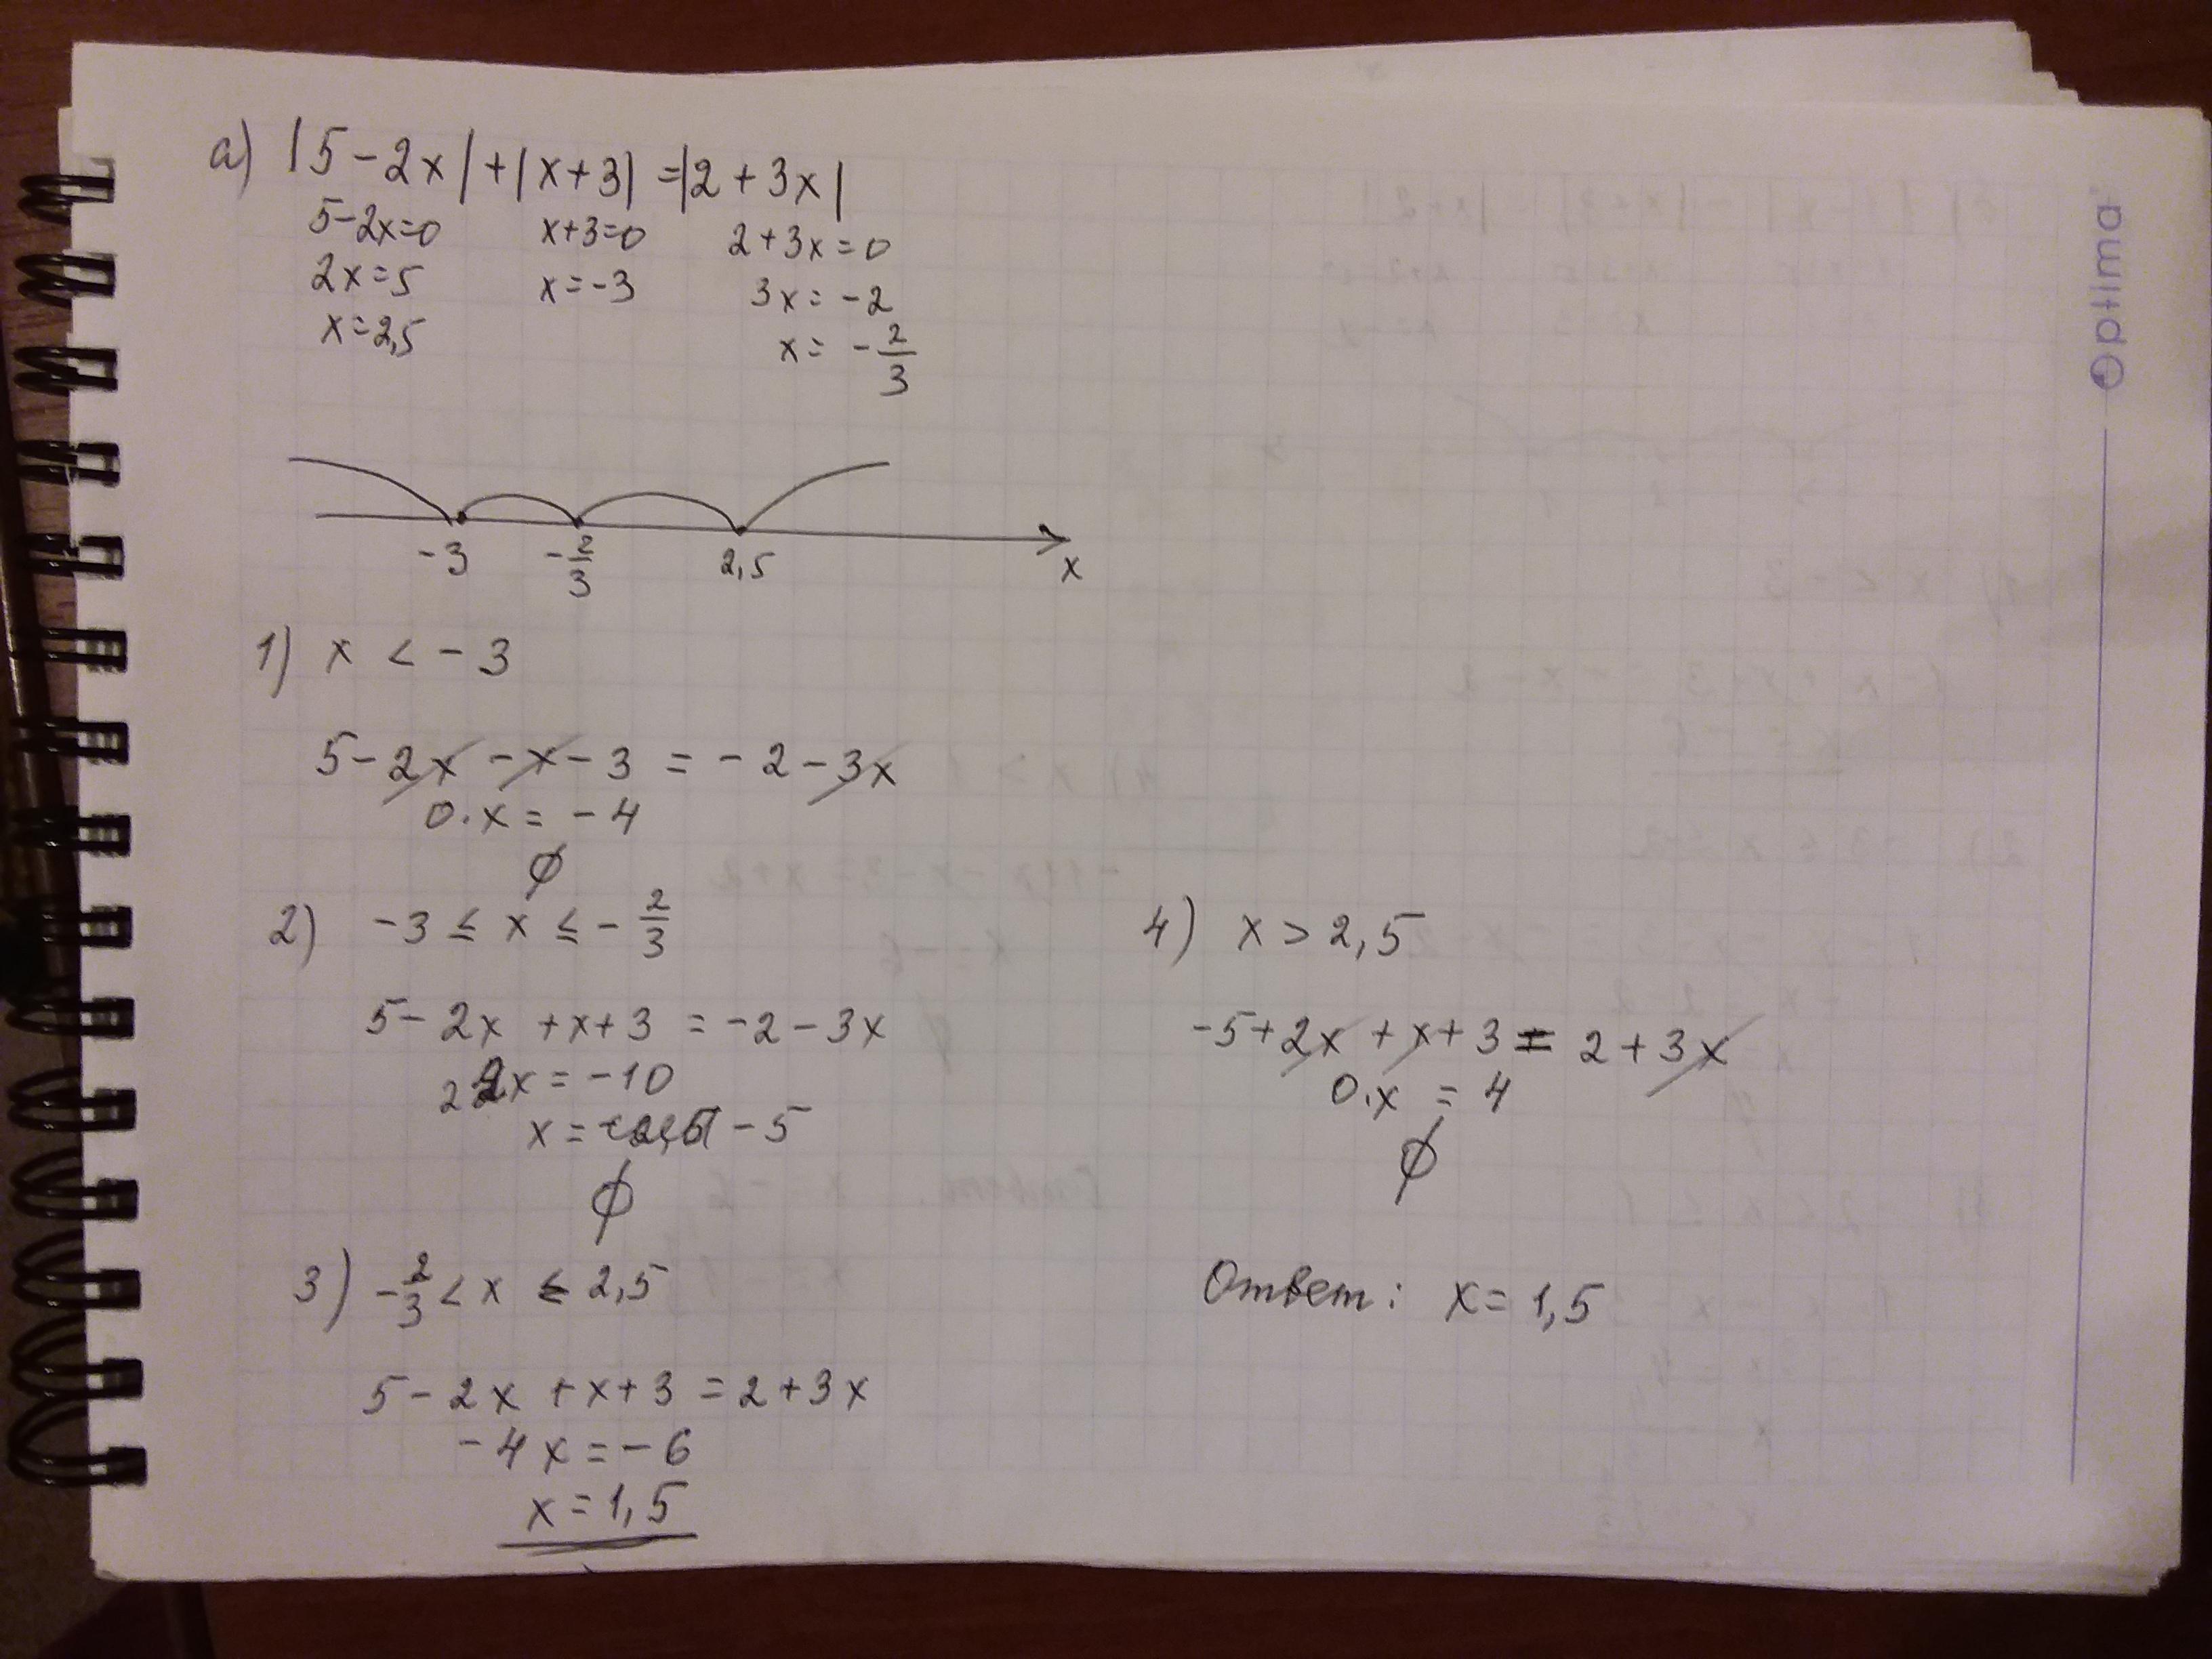 а) |5-2x|+|x+3|=|2+3x|
5-2x=0 x+3=0 2+3x=0
2x=5 x=-3 3x=-2
x=2,5 x=-2/3
-3 -2/3 2,5 x
1) x < -3
5-2x-x-3=-2-3x
0·x=-4
∅
2) -3 ≤ x ≤ -2/3
5-2x+x+3=-2-3x
2x=-10
x=-5
∅
3) -2/3 < x ≤ 2,5
5-2x+x+3=2+3x
-4x=-6
x=1,5
4) x > 2,5
-5+2x+x+3=2+3x
0·x=4
∅
Ответ: x=1,5
Optima